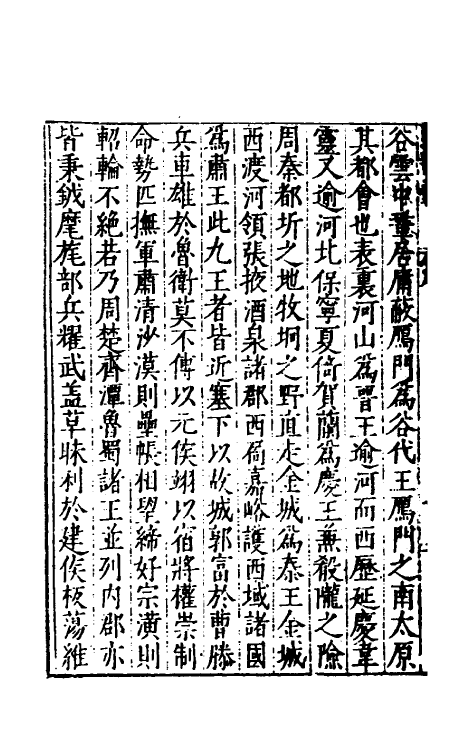 谷雲中鞏居庸蔽鴈門為谷代王鴈門之南太原
其都會也表裏河山為晋王逾河而西歷延慶韋
靈又逾河北保寧夏倚賀蘭為慶王兼殽隴之險
周秦都圻之地牧坰之野直走金城為秦王金城
西渡河領張掖酒泉諸郡西扄嘉峪護西域諸國
為肅王此九王者皆近塞下以故城郭富於曹滕
兵車雄於魯衛莫不傅以元侯翊以宿將權崇制
命勢匹撫軍肅清沙漠則壘帳相望締好宗潢則
軺輪不絶若乃周楚齊潭魯蜀諸王並列内郡亦
皆秉鉞麾旄部兵耀武盖草昧利於建侯板蕩維